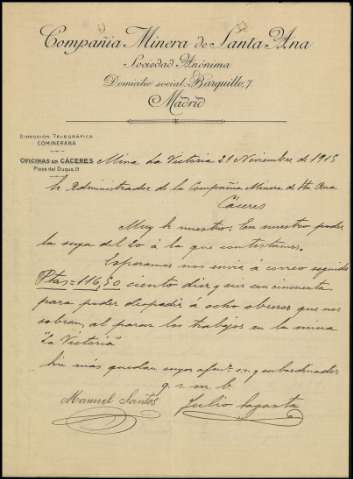 Compañia Minera de Santa Ana
Sociedad Anónima
Domicilio social: Barquillo, 7
Madrid
DIRECCIÓN TELEGRÁFICA
COMINERANA
OFICINAS EN CÁCERES
Plaza del Duque, 11
Mina La Victoria 21 Noviembre de 1915
Sr Administrador de la Compañia Minera de Sta Ana
Cáceres
Muy Sr nuestro: En nuestro poder
la suya del 20 á la que contestamos.
Esperamos nos envie á correo seguido
Ptas = 116,50 ciento diez y seis con cincuenta
para poder despedir á ocho obreros que nos
sobran, al parar los trabajos en la mina
"La Victoria"
Sin más quedan suyos afmos. s.s. y subordinados
q. s. m. b.
Manuel Santos
Julio Sagasta